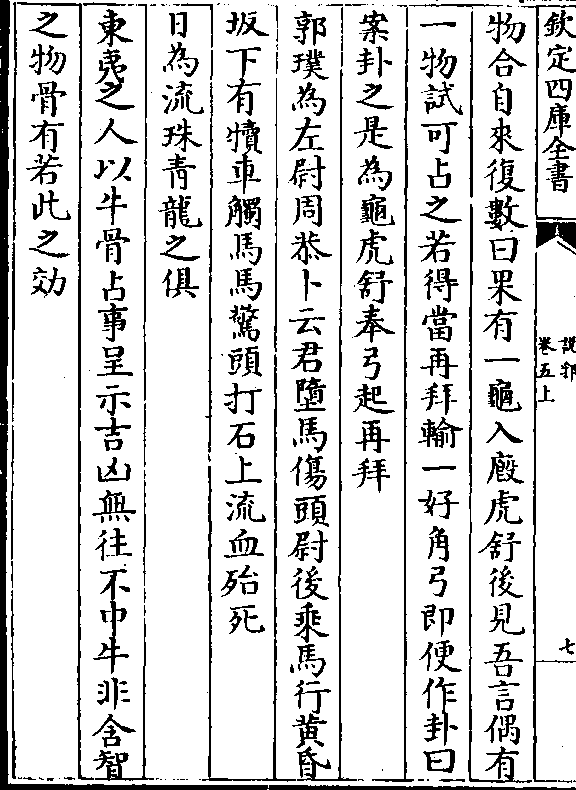 欽定四庫全書
說郛
卷五上
七
物合自來復數日果有一龜入廄虎舒後見吾言偶有
一物試可占之若得當再拜輸一好角弓即便作卦曰
案卦之是為龜虎舒奉弓起再拜
郭璞為左尉周恭卜云君墮馬傷頭尉後乘馬行黃昏
坂下有犢車觸馬馬驚頭打石上流血殆死
日為流珠青龍之俱
東夷之人以牛骨占事呈示吉凶無往不中牛非含智
之物骨有若此之効